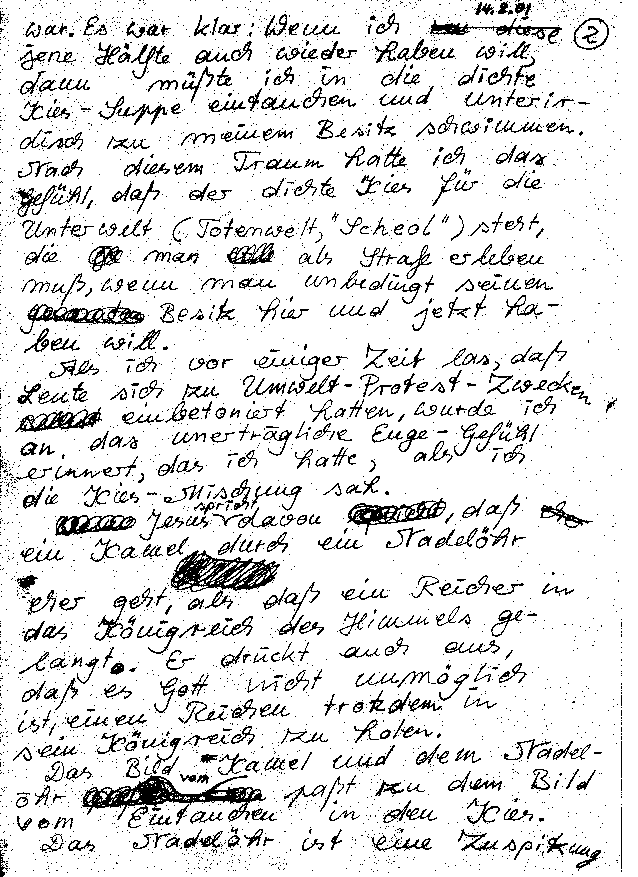 14.2.01
war. Es war klar: Wenn ich diese ②
jene Hälfte auch wieder haben will,
dann müßte ich in die dichte
Kies-Suppe eintauchen und unterir-
disch zu meinem Besitz schwimmen.
Nach diesem Traum hatte ich das
Gefühl, daß der dichte Kies für die
Unterwelt (Totenwelt, "Scheol") steht,
die man als Straße erleben
muß, wenn man unbedingt seinen
Besitz hier und jetzt ha-
ben will.
Als ich vor einiger Zeit las, daß
Leute sich zu Umwelt-Protest-Zwecken
einbetoniert hatten, wurde ich
an das unerträgliche Enge-Gefühl
erinnert, das ich hatte, als ich
die Kies-Mischung sah.
Jesus spricht davon, daß
ein Kamel durch ein Nadelöhr
eher geht, als daß ein Reicher in
das Königreich des Himmels ge-
langt. Er drückt auch aus,
daß es Gott nicht unmöglich
ist, einen Reichen trotzdem in
sein Königreich zu holen.
Das Bild vom Kamel und dem Nadel-
öhr paßt zu dem Bild
vom Eintauchen in den Kies.
Das Nadelöhr ist eine Zuspitzung